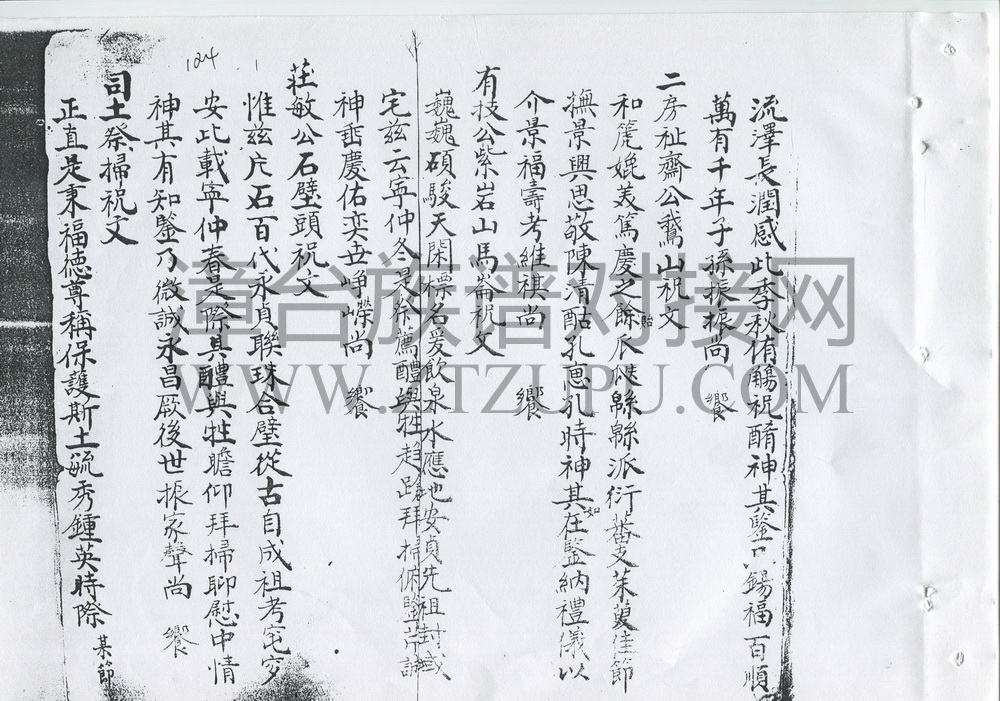 流澤長潤感此季秋侑觴祝酹神其鑒錫福百順
萬有千年子孫振振尚 饗
二房祉齋公鵞山祝文
和箎媲美篤慶之餘貽瓜瓞緜緜派衍蕃支茱萸佳節
撫景興思敬陳清酤孔惠孔時神其在知鑒納禮儀以
介景福壽考維祺尚 饗
有技公紫岩山馬崙祝文
巍巍碩駿天閑標名爰飲泉水應地安貞先祖封域
宅茲云寧仲冬是祭薦醴與牲趋蹌拜掃俯鑒
神啚慶佑奕世崢嶸尚 饗
莊敏公石壁頭祝文
惟茲片石百代永貞聯珠合璧從古自成祖考宅穸
安此載寧仲春是際具醴與牲瞻仰拜掃聊慰中情
神其有知鑒乃微誠永昌厥後世振家聲尚 饗
司土祭掃祝文
正直是秉福徳尊稱保護斯土毓秀鍾英時際 某節
124
漳台族谱对接网
WWW.ZTZUPU.COM